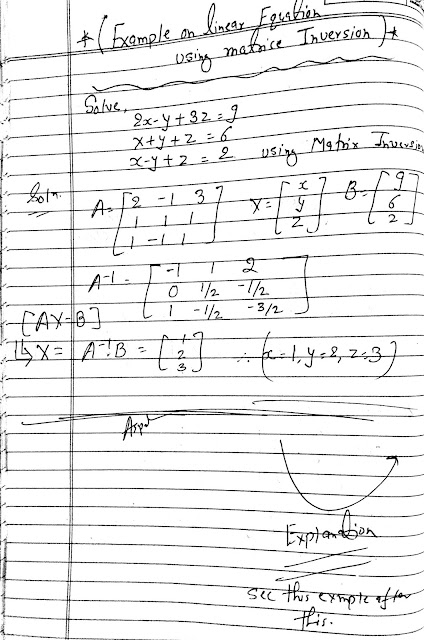 * (Example on linear Equation
using matrice Inversion) *
Solve,
2x-y+3z=9
x+y+z=6
x-y+z=2 using Matrix Inversion
Soln.
A=[2 -1 3 X=[x B=[9
1 1 1 y 6
1 -1 1] z] 2]
A-1 = [-1 1 2
0 1/2 -1/2
1 -1/2 -3/2]
[AX=B]
↳ X = A-1.B = [1 2 3] ∴ (x=1, y=2, z=3)
Explanation
See this exmple after
this.